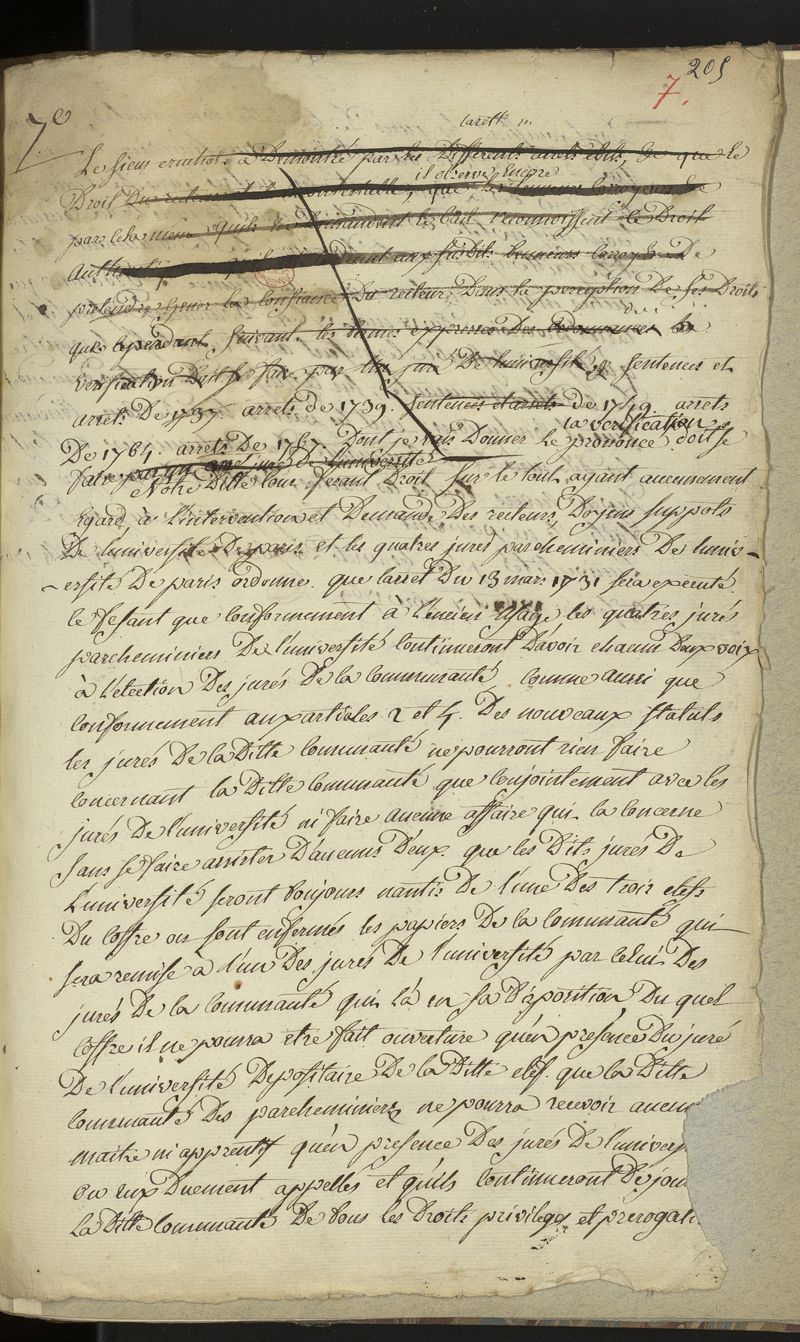 205
7.
7e
Le Sieur a Demontré par les Differents arrets edits, de que le
il observe Encore
Droit Du recteur et incontestable, que
par la main quils le bail reconnoissent le Droit
aux susdits De
pretendre gener la Confiance Du recteur Dans la perception De ses Droits
que cependant suivant les termes expresses Des ordonnances la
verification Doit se faire par un juré De l'université, Sentences et
arrets De 1737. arrets de 1739. Sentences et arrets de 1749. arrets
la verification
De 1764. arrets De 1767. Dont je vais Donner le prononcé doit se
faire par un juré De l'université
Notre Ditte Cour fesant Droit sur le tout ayant aucunement
Egard à L'intervention et Demande Des recteurs, Doyens suppots
De luniversité De paris et les quatres jurés parcheminiers De luniv-
-ersité De paris ordonne que larret Du 13 mars 1731 sera executé
le fesant que Conformement à L'encien Usage les quatres jurés
parcheminiers De L'université Continueront D'avoir chacun Deux voix
à L'élection Des jurés De la Communauté comme aussi que
Conformement aux articles 2 et 4. Des nouveaux Statuts
les jurés De la Ditte Communauté ne pourront rien faire
Concernant la Ditte Communauté que Conjointement avec les
jurés De l'université ni faire aucune affaire qui la Concerne
Sans se faire assister D'aucuns D'eux que les Dits jurés De
L'université seront toujours nantis De l'une Des trois clefs
Du Coffre ou sont enfermés les papiers De la Communauté qui
sera remise à l'un Des jurés De l'université par Celui Des
jurés De la Communauté qui L'à en sa Disposition Du quel
Coffre il ne pourra etre fait ouverture qu'en presence Du juré
De l'université Depositaire De la Ditte clef. que la Ditte
Communauté Des parcheminiers ne pourra recevoir aucun
maitre ni apprentif qu'en presence Des jurés De l'univers
ou eux Duement appellés et quils Continueront De jou
La Ditte Communauté De tous les Droits privileges et prerogati